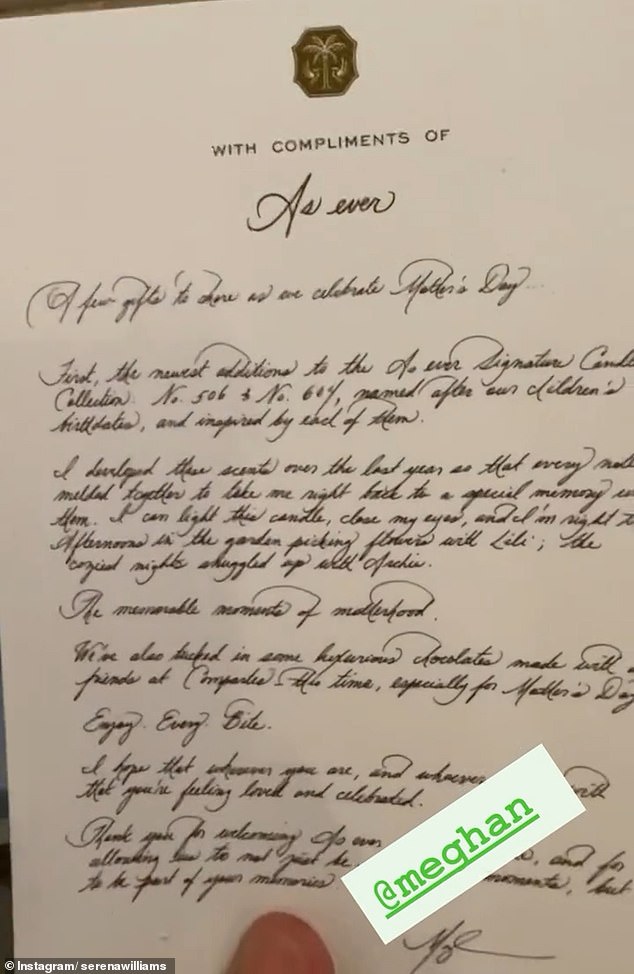 WITH COMPLIMENTS OF
As ever
A few gifts to share as we celebrate Mother's Day
First, the newest additions to the As ever Signature Candle
Collection. No. 506 & No. 604, named after our children's
birthdates, and inspired by each of them.
I developed these scents over the last year so that every
melded together to take me right back to a special memory
them. I can light this candle, close my eyes, and I'm right
Afternoons in the garden picking flowers with Lili; the
coziest nights snuggled up with Archie.
The memorable moments of motherhood.
We've also tucked in some luxurious chocolates made with
friends at Compartés this time, especially for Mother's Day
Enjoy. Every. Bite.
I hope that wherever you are, and whoever with
that you're feeling loved and celebrated.
Thank you for welcoming As ever
allowing us to not just be , and for
to be part of your memories. moments, but
@meghan
© Instagram/ serenawilliams